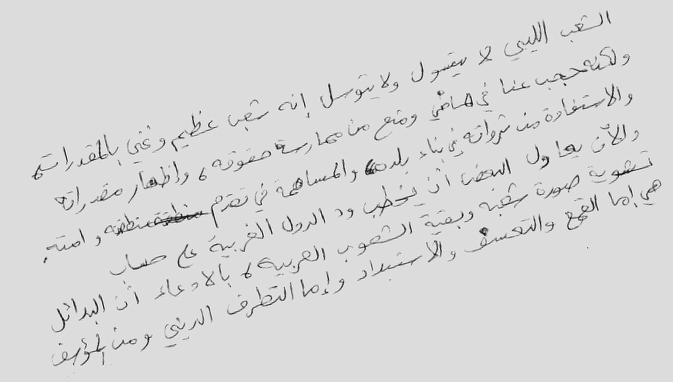 الشعب الليبي لا يتسول ولا يتوسل إنه شعب عظيم وغني بالمقدرات،
ولكنه حجب عنا في الماضي ومنع من ممارسة حقوقه، واظهار مقدراته
والاستفادة من ثرواته في بناء بلده، والمساهمة في تقدم منطقته وامته.
والآن يحاول البعض أن يخطب ود الدول الغربية على حساب
تشوية صورة شعبه وبقية الشعوب العربية، بالادعاء أن البدائل
هي إما القمع والتعسف والاستبداد وإما التطرف الديني ومن المؤسف